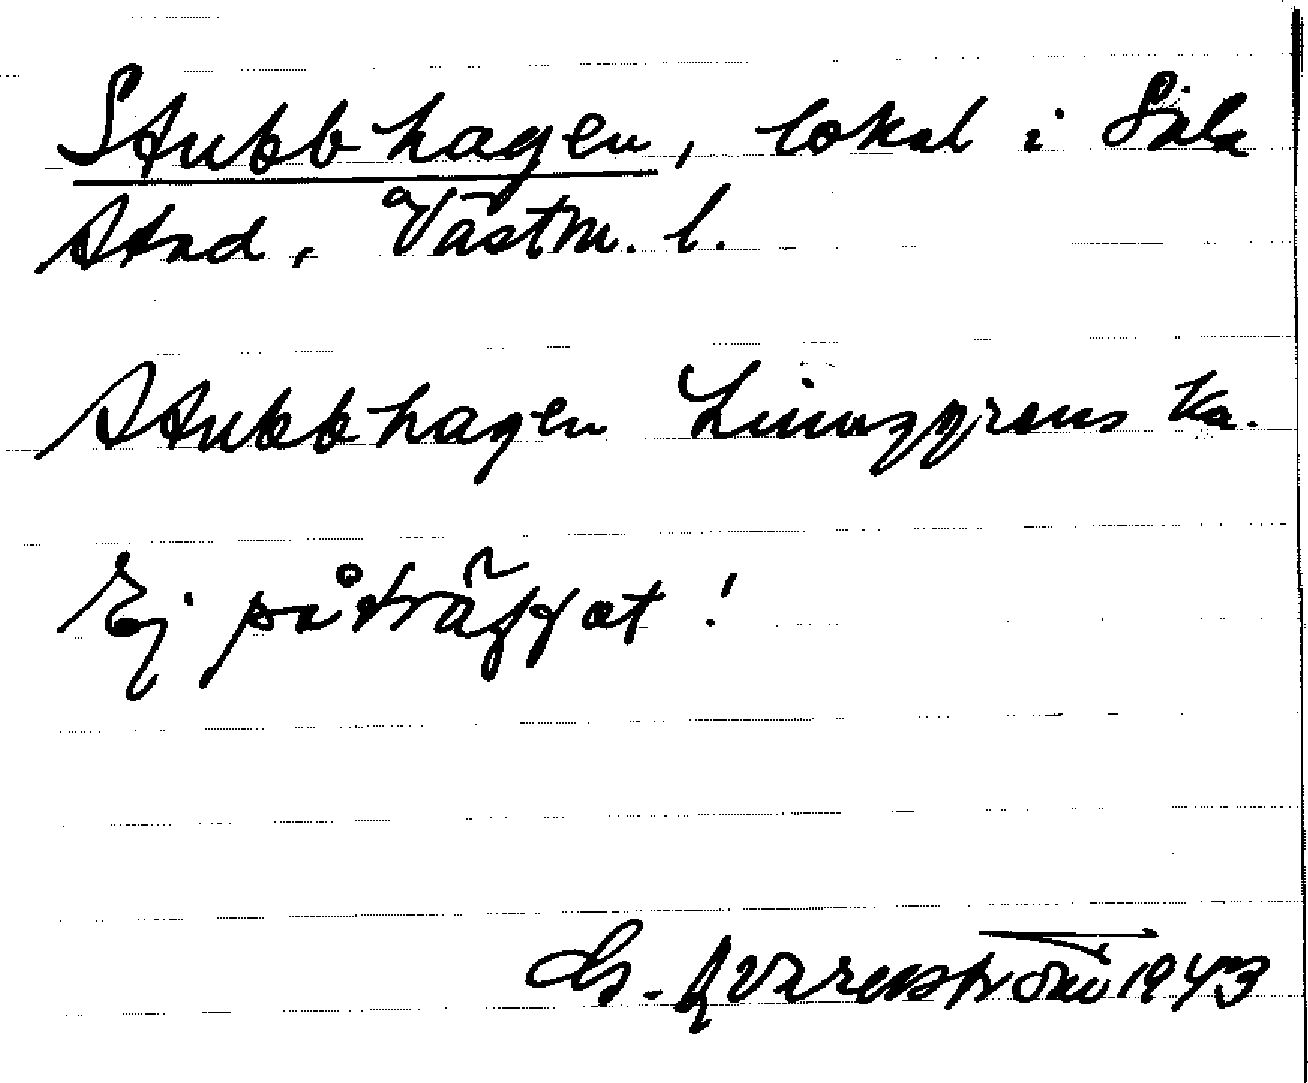 Stubbhagen, lokal i Sala
stad, Västm. l.
Stubbhagen Ljunggrens ka.
Ej påträffat!
G. Qvarnström 1943